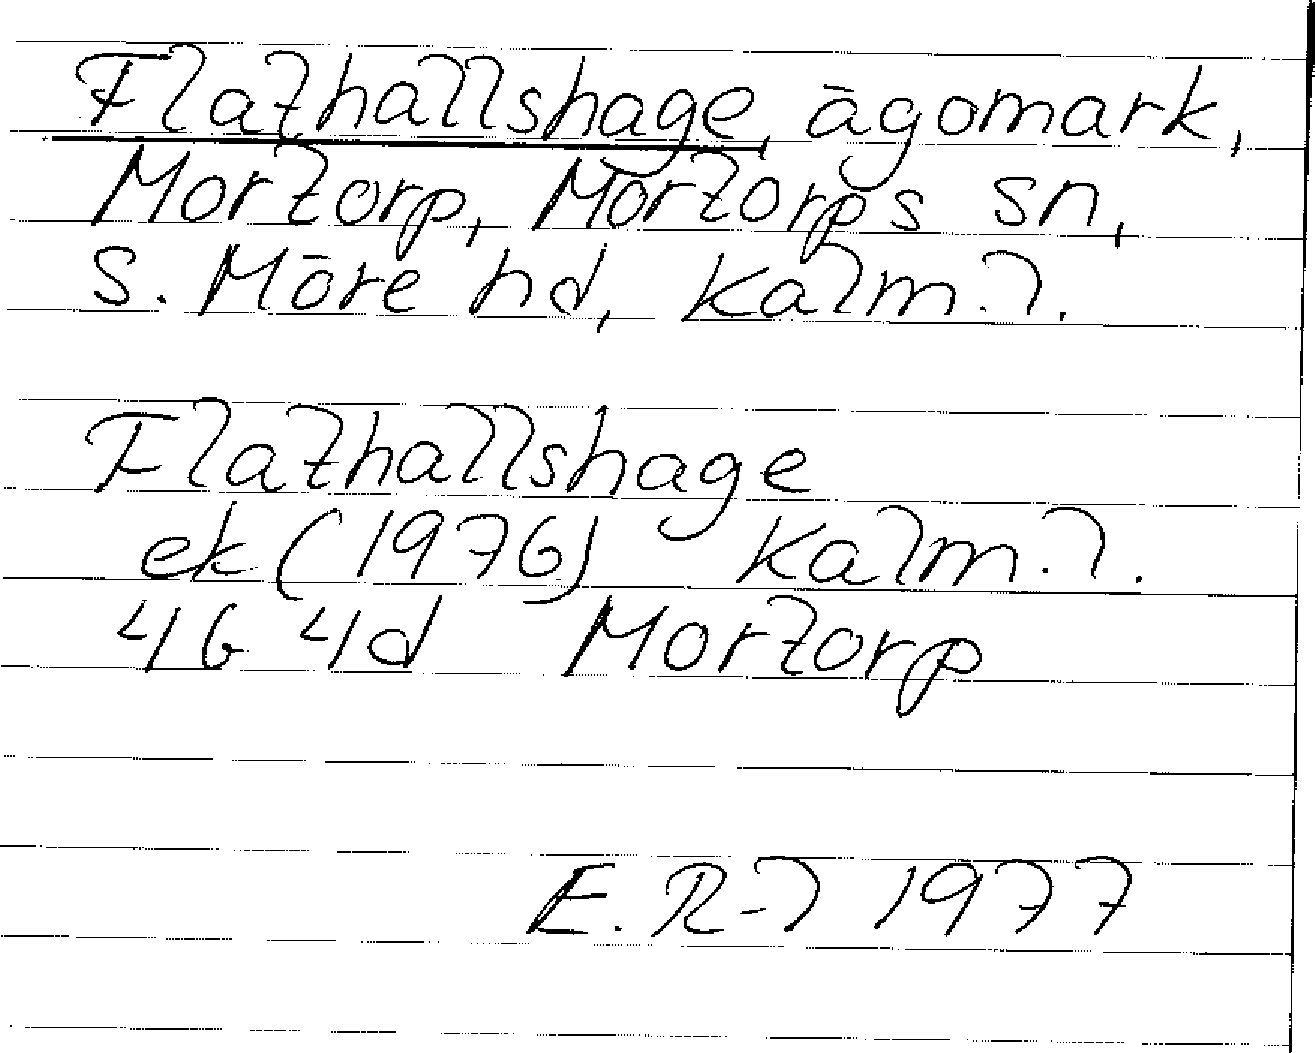 Flathallshage, ägomark,
Mortorp, Mortorps sn,
S. Möre hd, Kalm. l.
Flathallshage
ek (1976) Kalm. l.
4G 4d Mortorp
E. R-l 1977